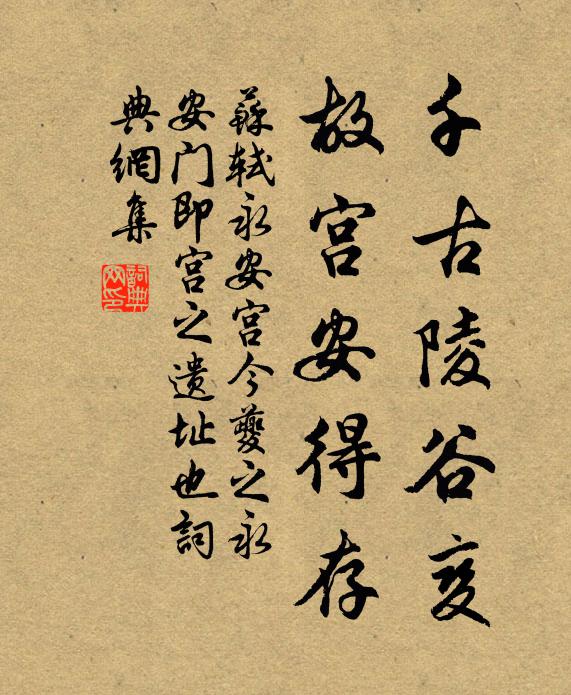 千古陵谷变
故宫安得存
蘇軾永安宫今夔之永
安门即宫之遗址也詞
典網集
詞典
网印